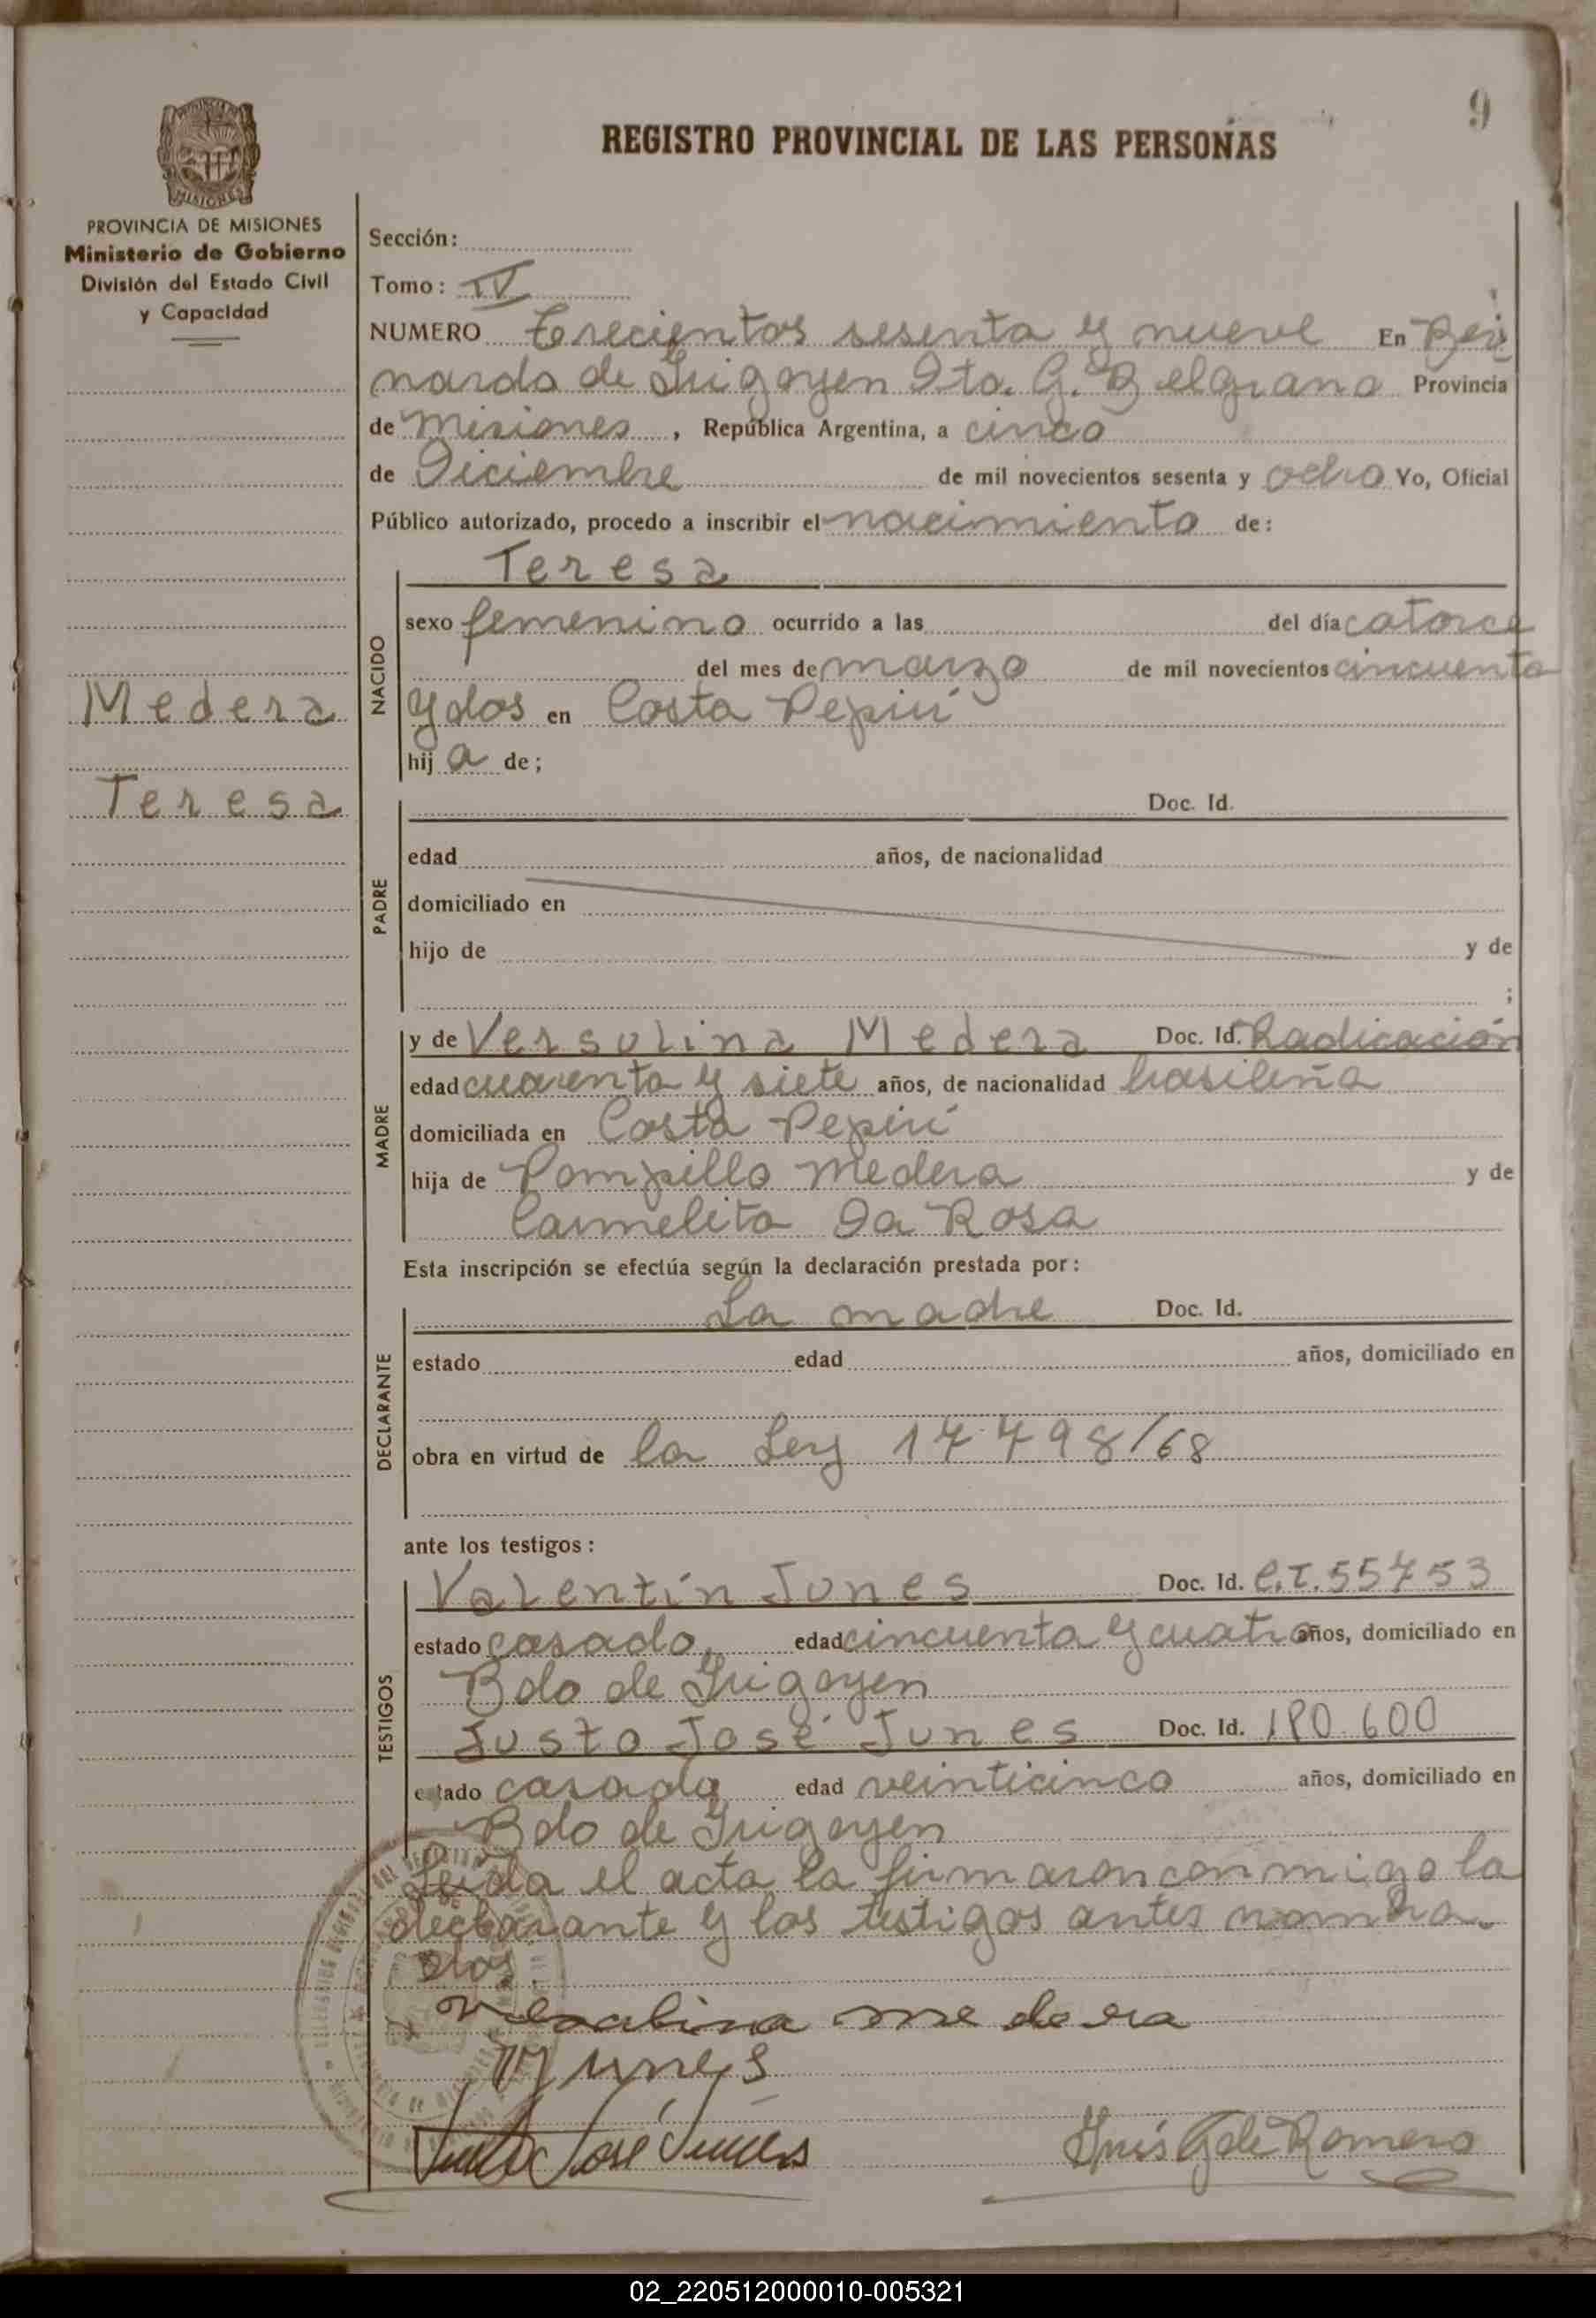 9
REGISTRO PROVINCIAL DE LAS PERSONAS
PROVINCIA DE MISIONES
Ministerio de Gobierno
División del Estado Civil
y Capacidad
Medera
Teresa
Sección:
Tomo: IV
NUMERO Trecientos sesenta y nueve En Ber
nardo de Irigoyen Dto. G. Belgrano Provincia
de Misiones, República Argentina, a cinco
de Diciembre de mil novecientos sesenta y ocho Yo, Oficial
Público autorizado, procedo a inscribir el nacimiento de:
Teresa
NACIDO
sexo femenino ocurrido a las del día catorce
del mes de marzo de mil novecientos cincuenta
y dos en Costa Pepirí
hij a de;
PADRE
Doc. Id.
edad años, de nacionalidad
domiciliado en
hijo de y de
;
MADRE
y de Versolina Medera Doc. Id. Radicación
edad cuarenta y siete años, de nacionalidad brasileña
domiciliada en Costa Pepirí
hija de Pompillo Medera y de
Carmelita Da Rosa
Esta inscripción se efectúa según la declaración prestada por:
DECLARANTE
La madre Doc. Id.
estado edad años, domiciliado en
obra en virtud de la Ley 17498/68
ante los testigos:
TESTIGOS
Valentín Junes Doc. Id. C.I. 55753
estado casado, edad cincuenta y cuatro años, domiciliado en
Bdo de Irigoyen
Justo José Junes Doc. Id. 180.600
estado casado edad veinticinco años, domiciliado en
Bdo de Irigoyen
Leida el acta la firmaron conmigo la
declarante y los testigos antes nombra-
dos.
medera
Junes
Justo José Junes
Inés G de Romero
02_220512000010-005321